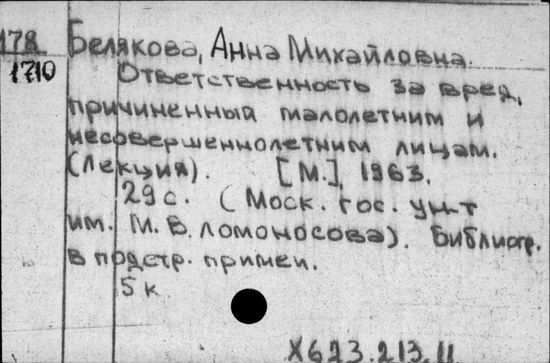 178 Белякова, Анна Михайловна.
1710 Ответственность за вред,
причиненный малолетним и
несовершеннолетним лицам.
(Лекция). [М.], 1963.
29 с. (Моск. гос. ун-т
им. М. В. Ломоносова). Библиогр.
в подстр. примеч.
5 к.
X673.213.11